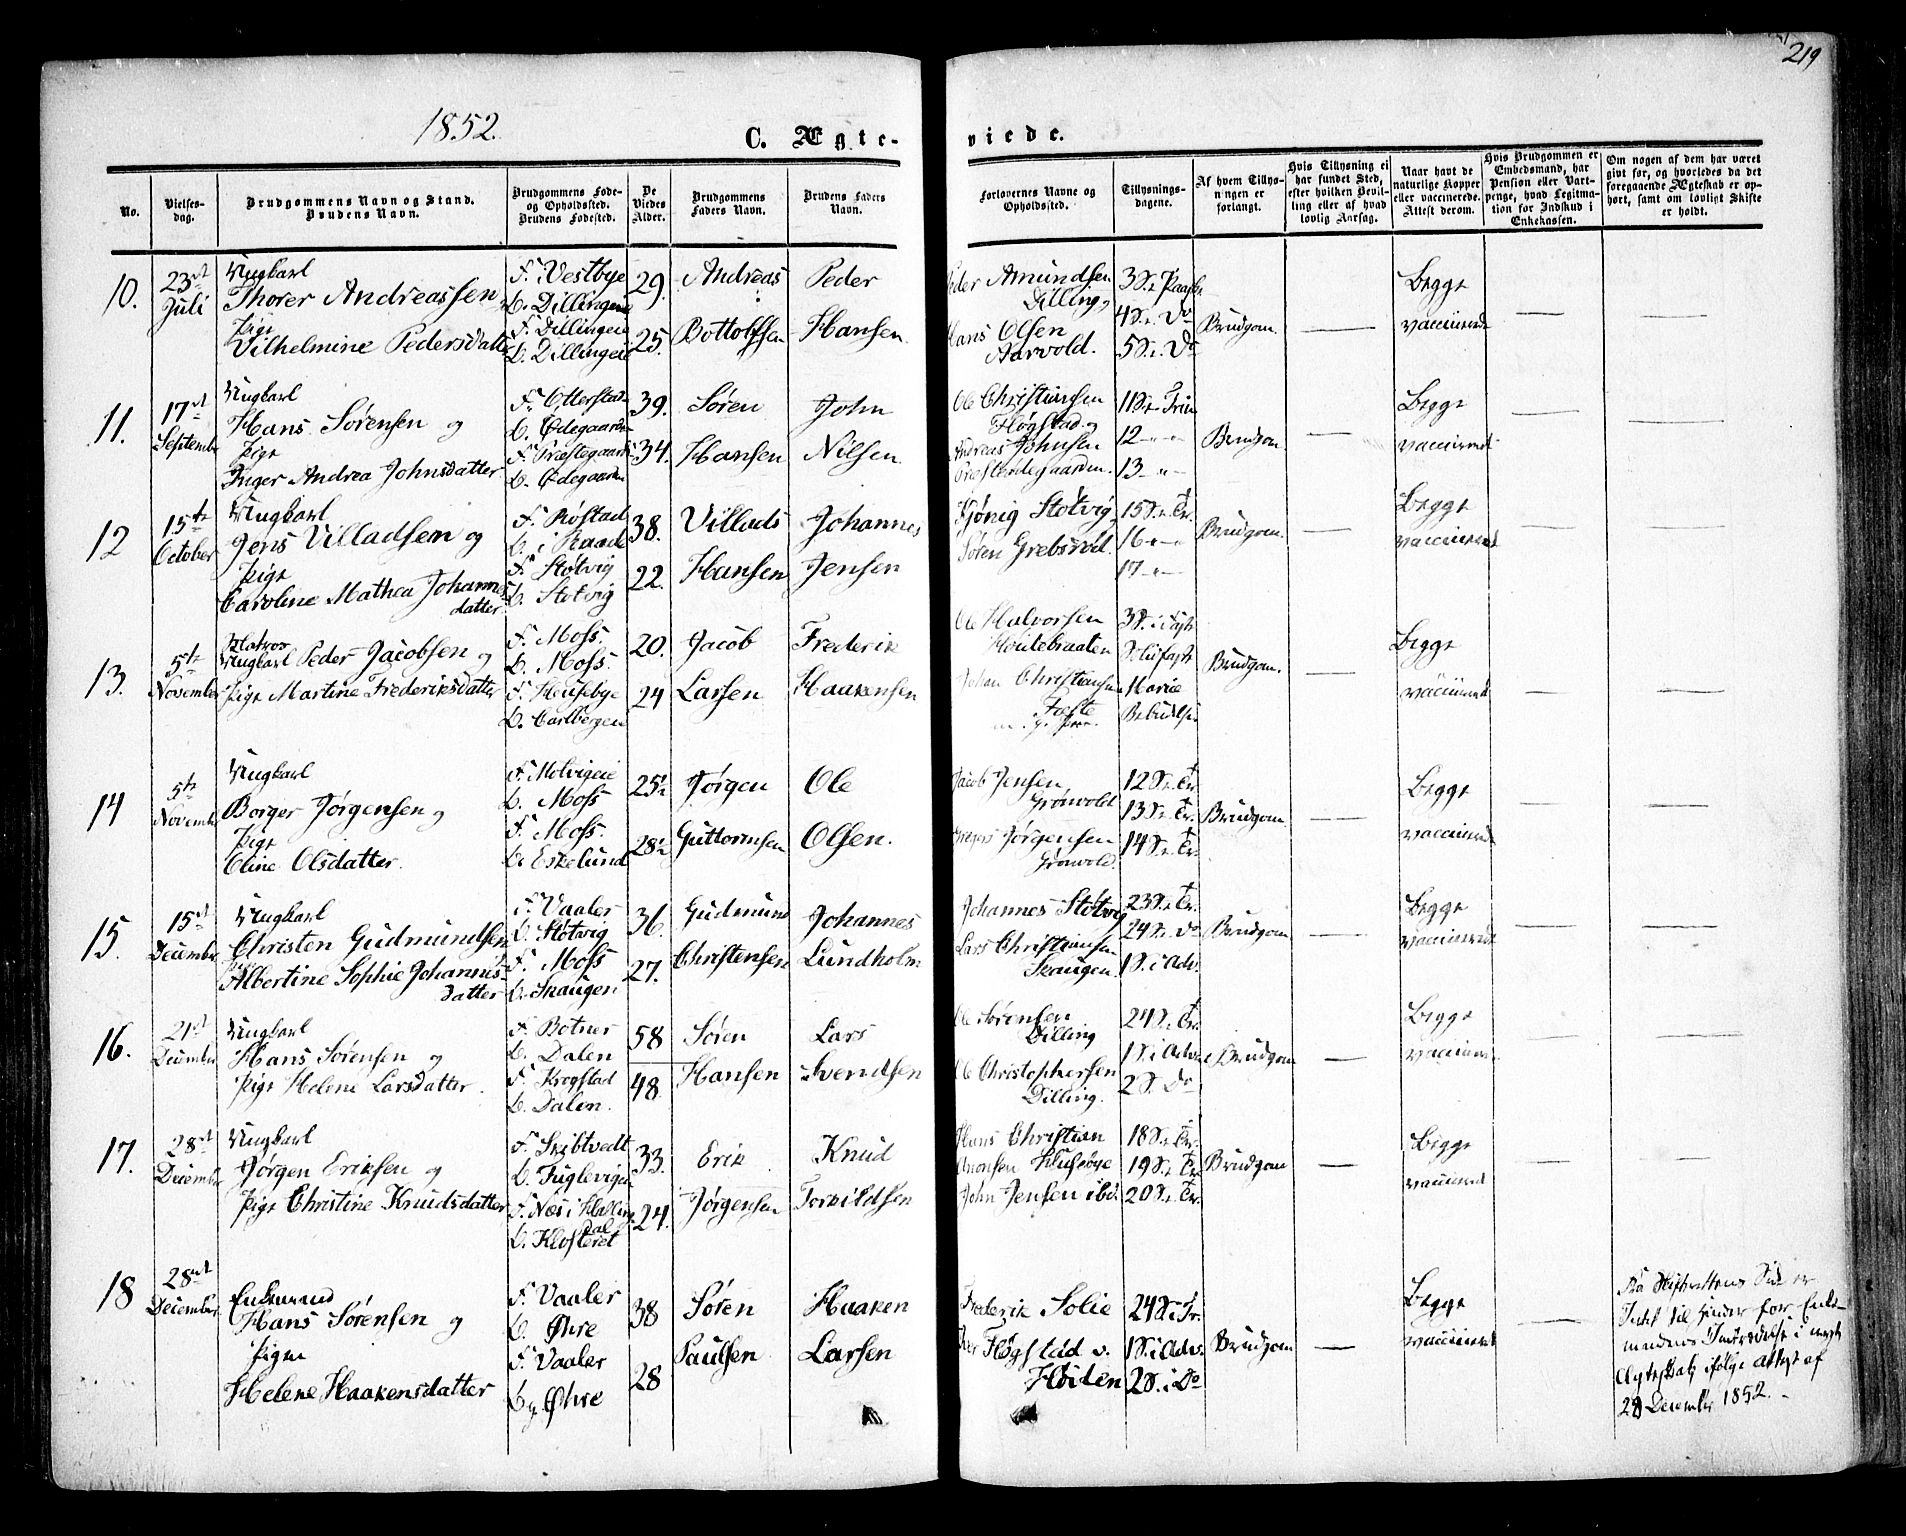 219
1852.
C. Ægte-
viede.
No.
Vielses-
dag.
Brudgommens Navn og Stand.
Brudens Navn.
Brudgommens Føde-
og Opholdssted.
Brudens Fødested.
De
Viedes
Alder.
Brudgommens
Faders Navn.
Brudens Faders
Navn.
Forlovernes Navne og
Opholdssted.
Tillysnings-
dagene.
Af hvem Tillys-
ningen er
forlangt.
Hvis Tillysning ei
har fundet Sted,
efter hvilken Bevil-
ling eller af hvad
lovlig Aarsag.
Naar havt de
naturlige Kopper
eller vaccinerede.
Attest derom.
Hvis Brudgommen er
Embedsmand, har
Pension eller Vart-
penge, hvad Legitima-
tion for Indskud i
Enkekassen.
Om nogen af dem har været
givt før, og hvorledes da det
foregaaende Ægteskab er op-
hørt, samt om lovligt Skifte
er holdt.
10. 23de Juli
Ungkarl
Thorer Andreassen
Pige
Vilhelmine Pedersdatter
F. Vestbye
b. Dillingeie
F. Dillingeie
b. Dillingeie
29.
25.
Andreas
Bottolfsen
Peder
Hansen
Peder Amundsen
Dilling
Hans Olsen
Aarvold.
3 S. e. Paaske
4 S. e. Do
5 S. e. Do
Brudgom.
Begge
vaccinerede
11. 17de September
Ungkarl
Hans Sørensen og
Pige
Inger Andrea Johnsdatter
F. Otterstad
b. Ødegaarden
F. Præstegaard
b. Ødegaarden
39.
34.
Søren
Hansen
John
Nilsen
Ole Christiansen
Høgstad og
Andreas Johnsen
11 S. e. Trin
12 - " -
13 - " -
Brudgom
Begge
vaccinerede
12 15de October
Ungkarl
Jens Villadsen og
Pige
Caroline Mathea Johannes-
datter
F. Røstad
b. i Raade
F. Støtvig
b. Støtvig
38.
22.
Villads
Hansen
Johannes
Jensen
Hjønig Støtvig
Søren Grebsrød
15 S. e. Tr.
16 - " -
17 - " -
Brudgom.
Begge
vaccinerede
13. 5te November
Matros
Ungkarl Peder Jacobsen og
Pige Martine Frederiksdatter
F. Moss.
b. Moss.
F. Huusebye
b. Carlbergen
20.
24
Jacob
Larsen
Frederik
Haakensen
Ole Halvorsen
Johan Christiansen
3 S. i Faste
Mariæ
Bebudelse
Brudgom.
Begge
vaccinerede
14 5te November
Ungkarl
Borger Jørgensen og
Pige
Oline Olsdatter.
F. Molvigeie
b. Moss
F. Moss.
b. Eskelund
25½
28½
Jørgen
Guttormsen
Ole
Olsen.
Jacob Jensen
Grønvold
Jørgensen
Grønvold
12 S. e. Tr.
13 S. e. Tr.
14 S. e. Tr.
Brudgom.
Begge
vaccinerede
15. 15de December
Ungkarl
Christen Gudmundsen
Pige
Albertine Sophie Johannes-
datter
F. Vaaler
b. Støtvig
F. Moss
b. Skaugen
36.
27.
Gudmund
Christensen
Johannes
Lundholm
Johannes Støtvig
Lars Christiansen
Skaugen
23 S. e. Tr.
24 S. e. Do
1 S. i Adv.
Brudgom
Begge
vaccinerede
16. 21de December
Ungkarl
Hans Sørensen og
Pige Helene Larsdatter
F. Botner
b. Dalen
F. Krogstad
b. Dalen.
58
48
Søren
Hansen
Lars
Svendsen
Ole Sørensen
Dilling
Ole Christophersen
Dilling.
24 S. e. Tr.
1 S. i Adv.
2 S. Do
Brudgom
Begge
vaccinerede
17. 28de December
Ungkarl
Jørgen Eriksen og
Pige Christine Knudsdatter
F. Skibtvedt
b. Fuglevigen
F. Næs i Halling
dal
b. Klosteret
33.
24.
Erik
Jørgensen
Knud
Torkildsen
Hans Christian
John Jensen ibd
18 S. e. Tr.
19 S. e. Tr.
20 S. e. Tr.
Brudgom
Begge
vaccinerede
18 28de December
Enkemand
Hans Sørensen og
Pigen
Helene Haakensdatter
F. Vaaler
b. Øhre
F. Vaaler
b. Øhre
38
28
Søren
Paulsen
Haaken
Larsen
Frederik Solie
Høgstad v.
Høiden
24 S. e. Tr.
1 S. i Adv.
2 S. i Do
Brudgom
Begge
vaccinerede
Fra Skifterettens Side er
Intet til Hinder for Enke-
mandens Indtrædelse i nyt
Ægteskab ifølge Attest af
28 December 1852.